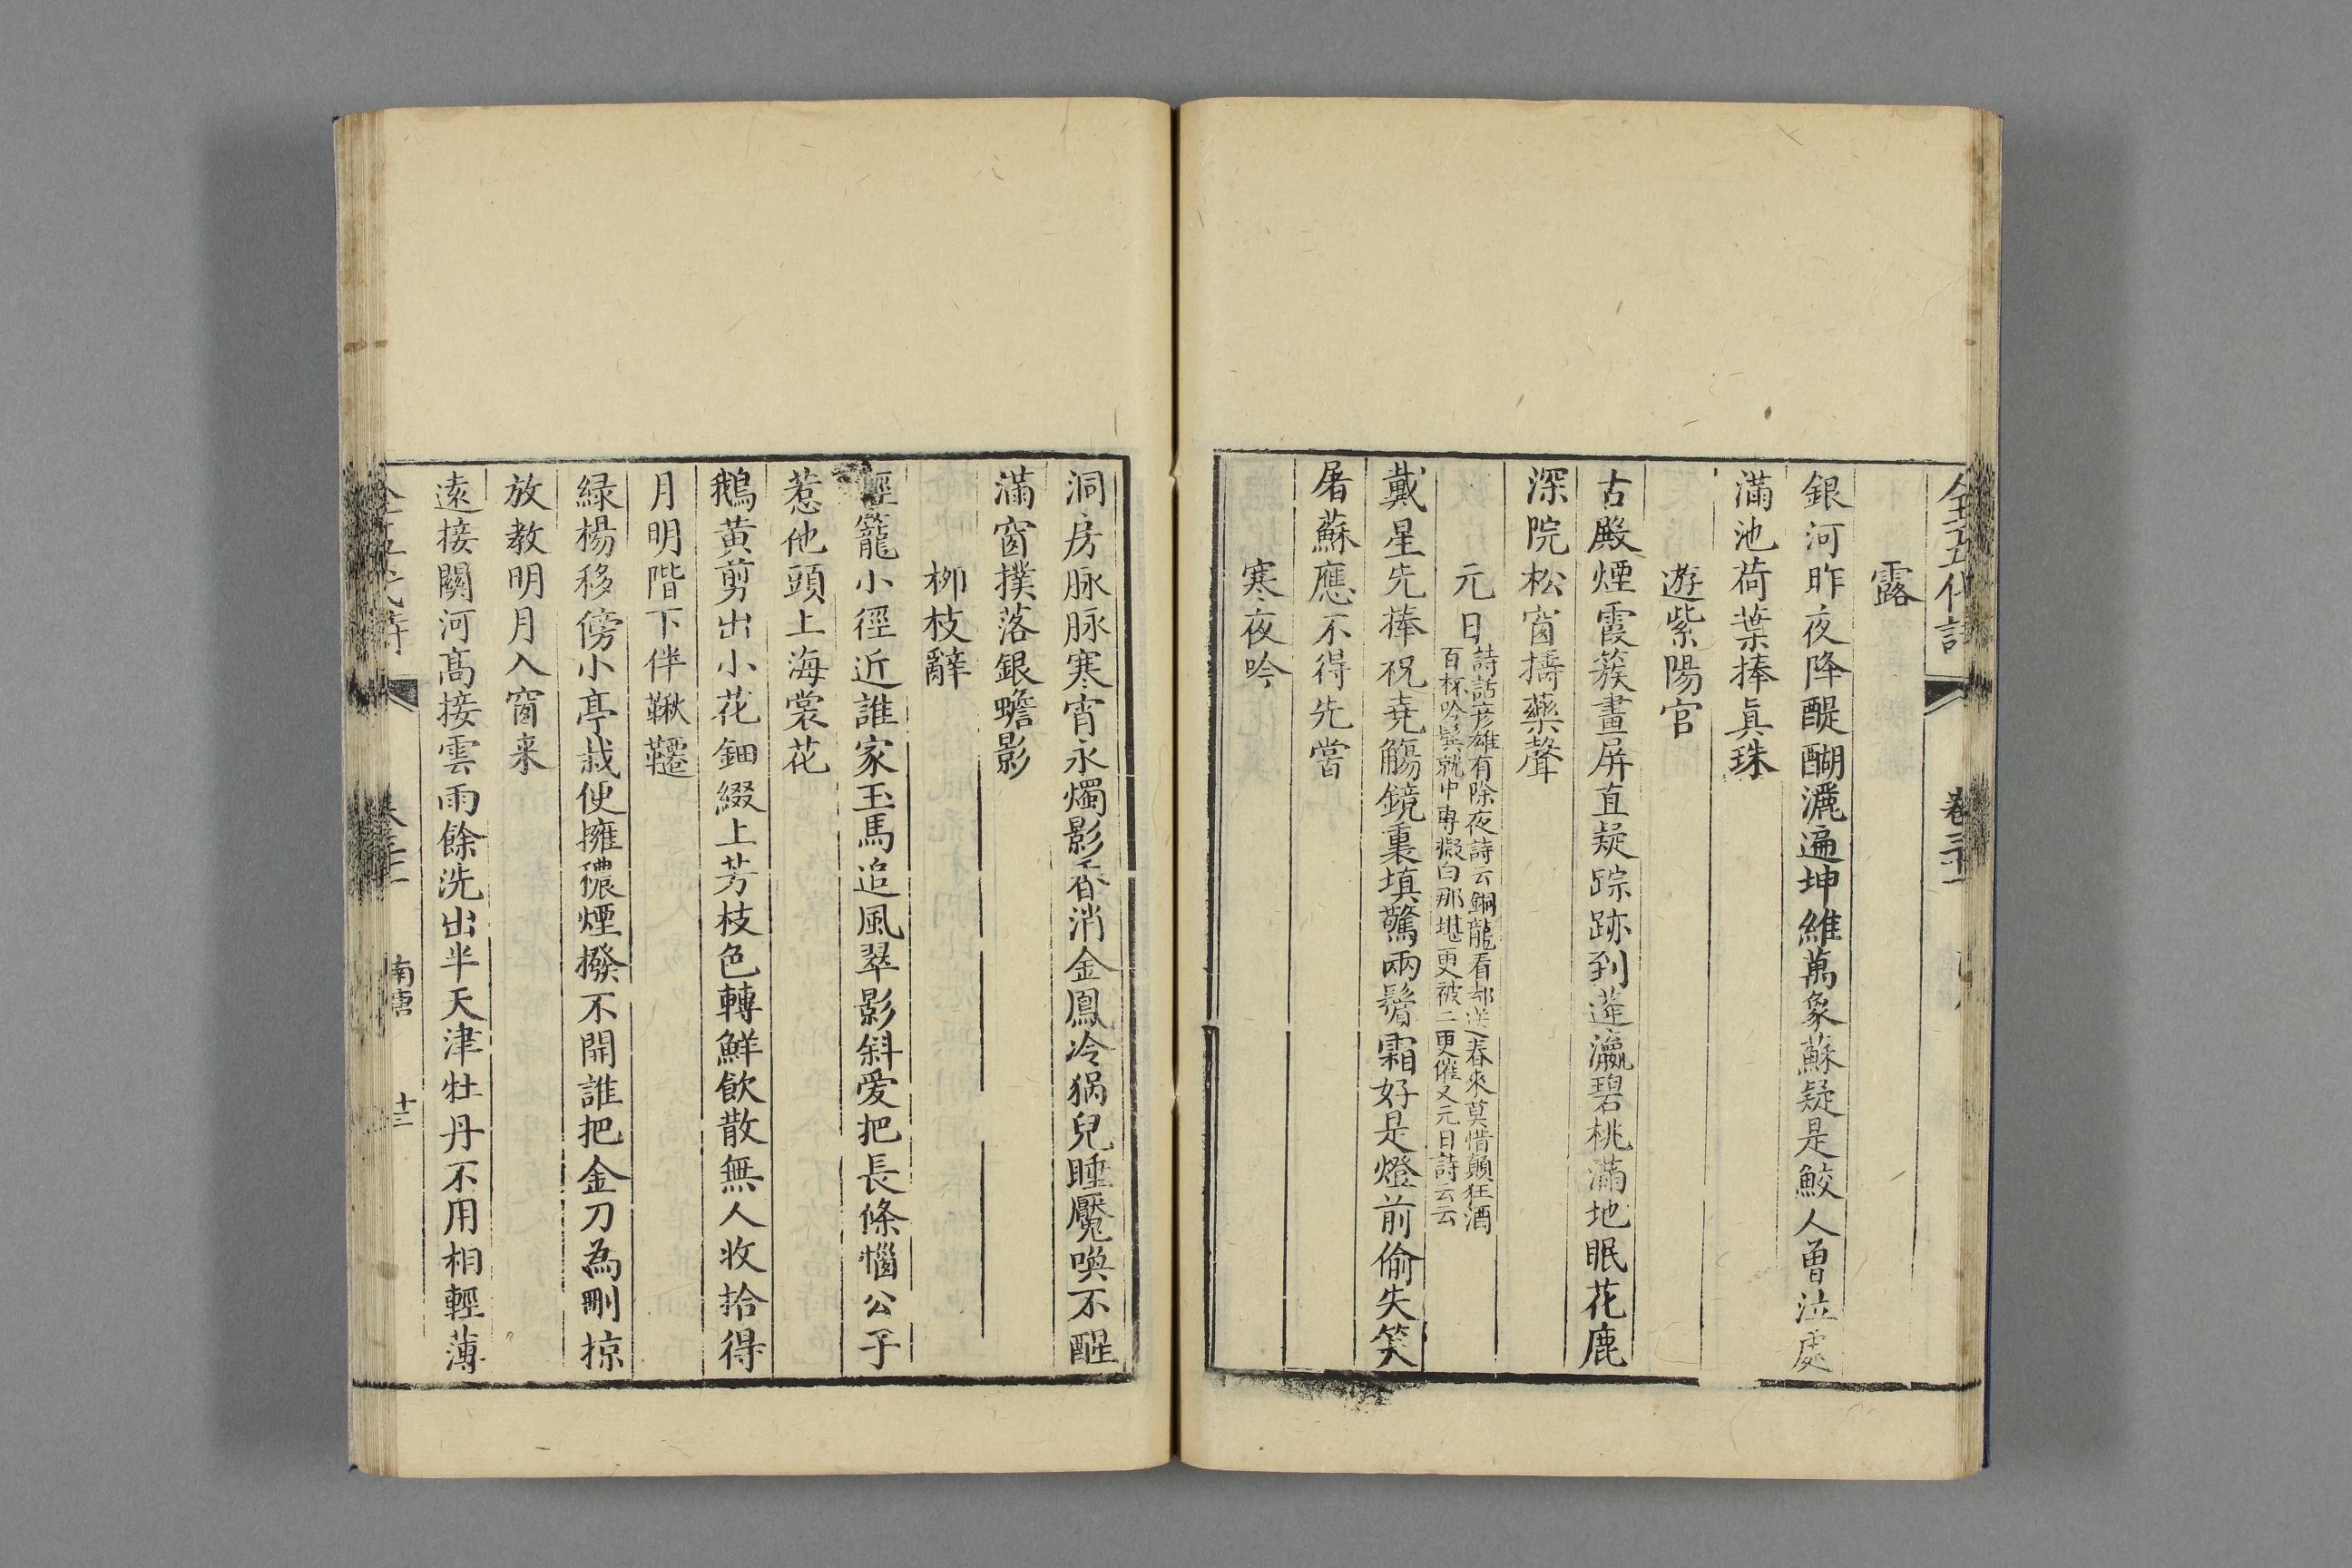 全五代詩
卷三十
露
銀河昨夜降醍醐灑遍坤維萬象蘇疑是鮫人曾泣處
滿池荷葉捧眞珠
遊紫陽宮
古殿煙霞簇畫屏直疑踪跡到蓬瀛碧桃滿地眠花鹿
深院松窗擣藥聲
元日
詩話彦雄有除夜詩云銅龍看却送春來莫惜顛狂酒
百杯吟鬂就中專擬白那堪更被二更催又元日詩云云
戴星先捧祝堯觴鏡裏塡驚兩鬢霜好是燈前偷失笑
屠蘇應不得先嘗
寒夜吟
洞房脉脉寒宵永燭影香消金鳳冷猧兒睡魘喚不醒
滿窗撲落銀蟾影
柳枝辭
輕籠小徑近誰家玉馬追風翠影斜愛把長條惱公子
惹他頭上海裳花
鵝黃剪出小花鈿綴上芳枝色轉鮮飲散無人收拾得
月明階下伴鞦韆
緑楊移傍小亭栽便擁儂煙撥不開誰把金刀為刪掠
放教明月入窗来
遠接關河髙接雲雨餘洗出半天津牡丹不用相輕薄
南唐
十三